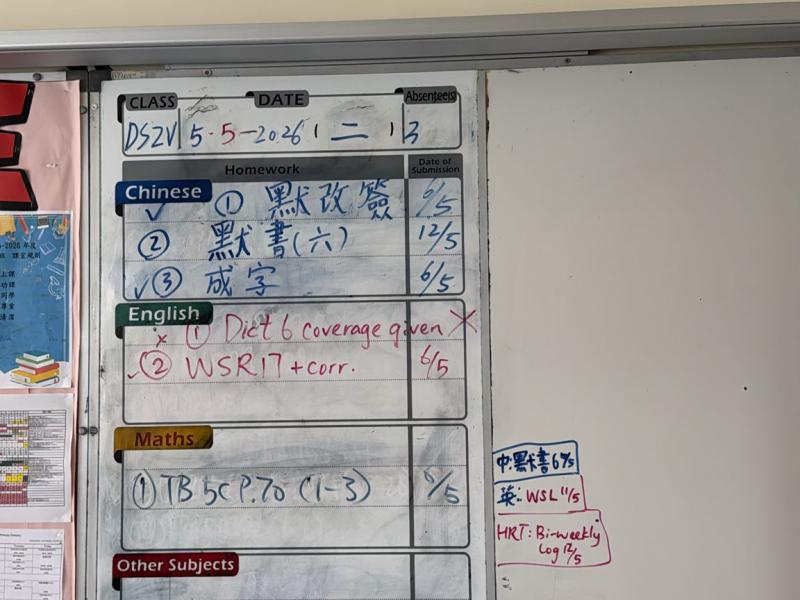 CLASS DATE Absentee(s)
5-5-2026 ( 二 ) 3
Homework Date of Submission
Chinese
✓ ① 默改簽 6/5
② 默書(六) 12/5
✓③ 成字 6/5
English
x ① Dict 6 coverage given X
✓② WSR17 + corr. 6/5
Maths
① TB 5C P.70 (1-3) 6/5
Other Subjects
中:默書6
英: WSL 11/5
HRT: Bi-weekly
Log 12/5
上課
功課
同學